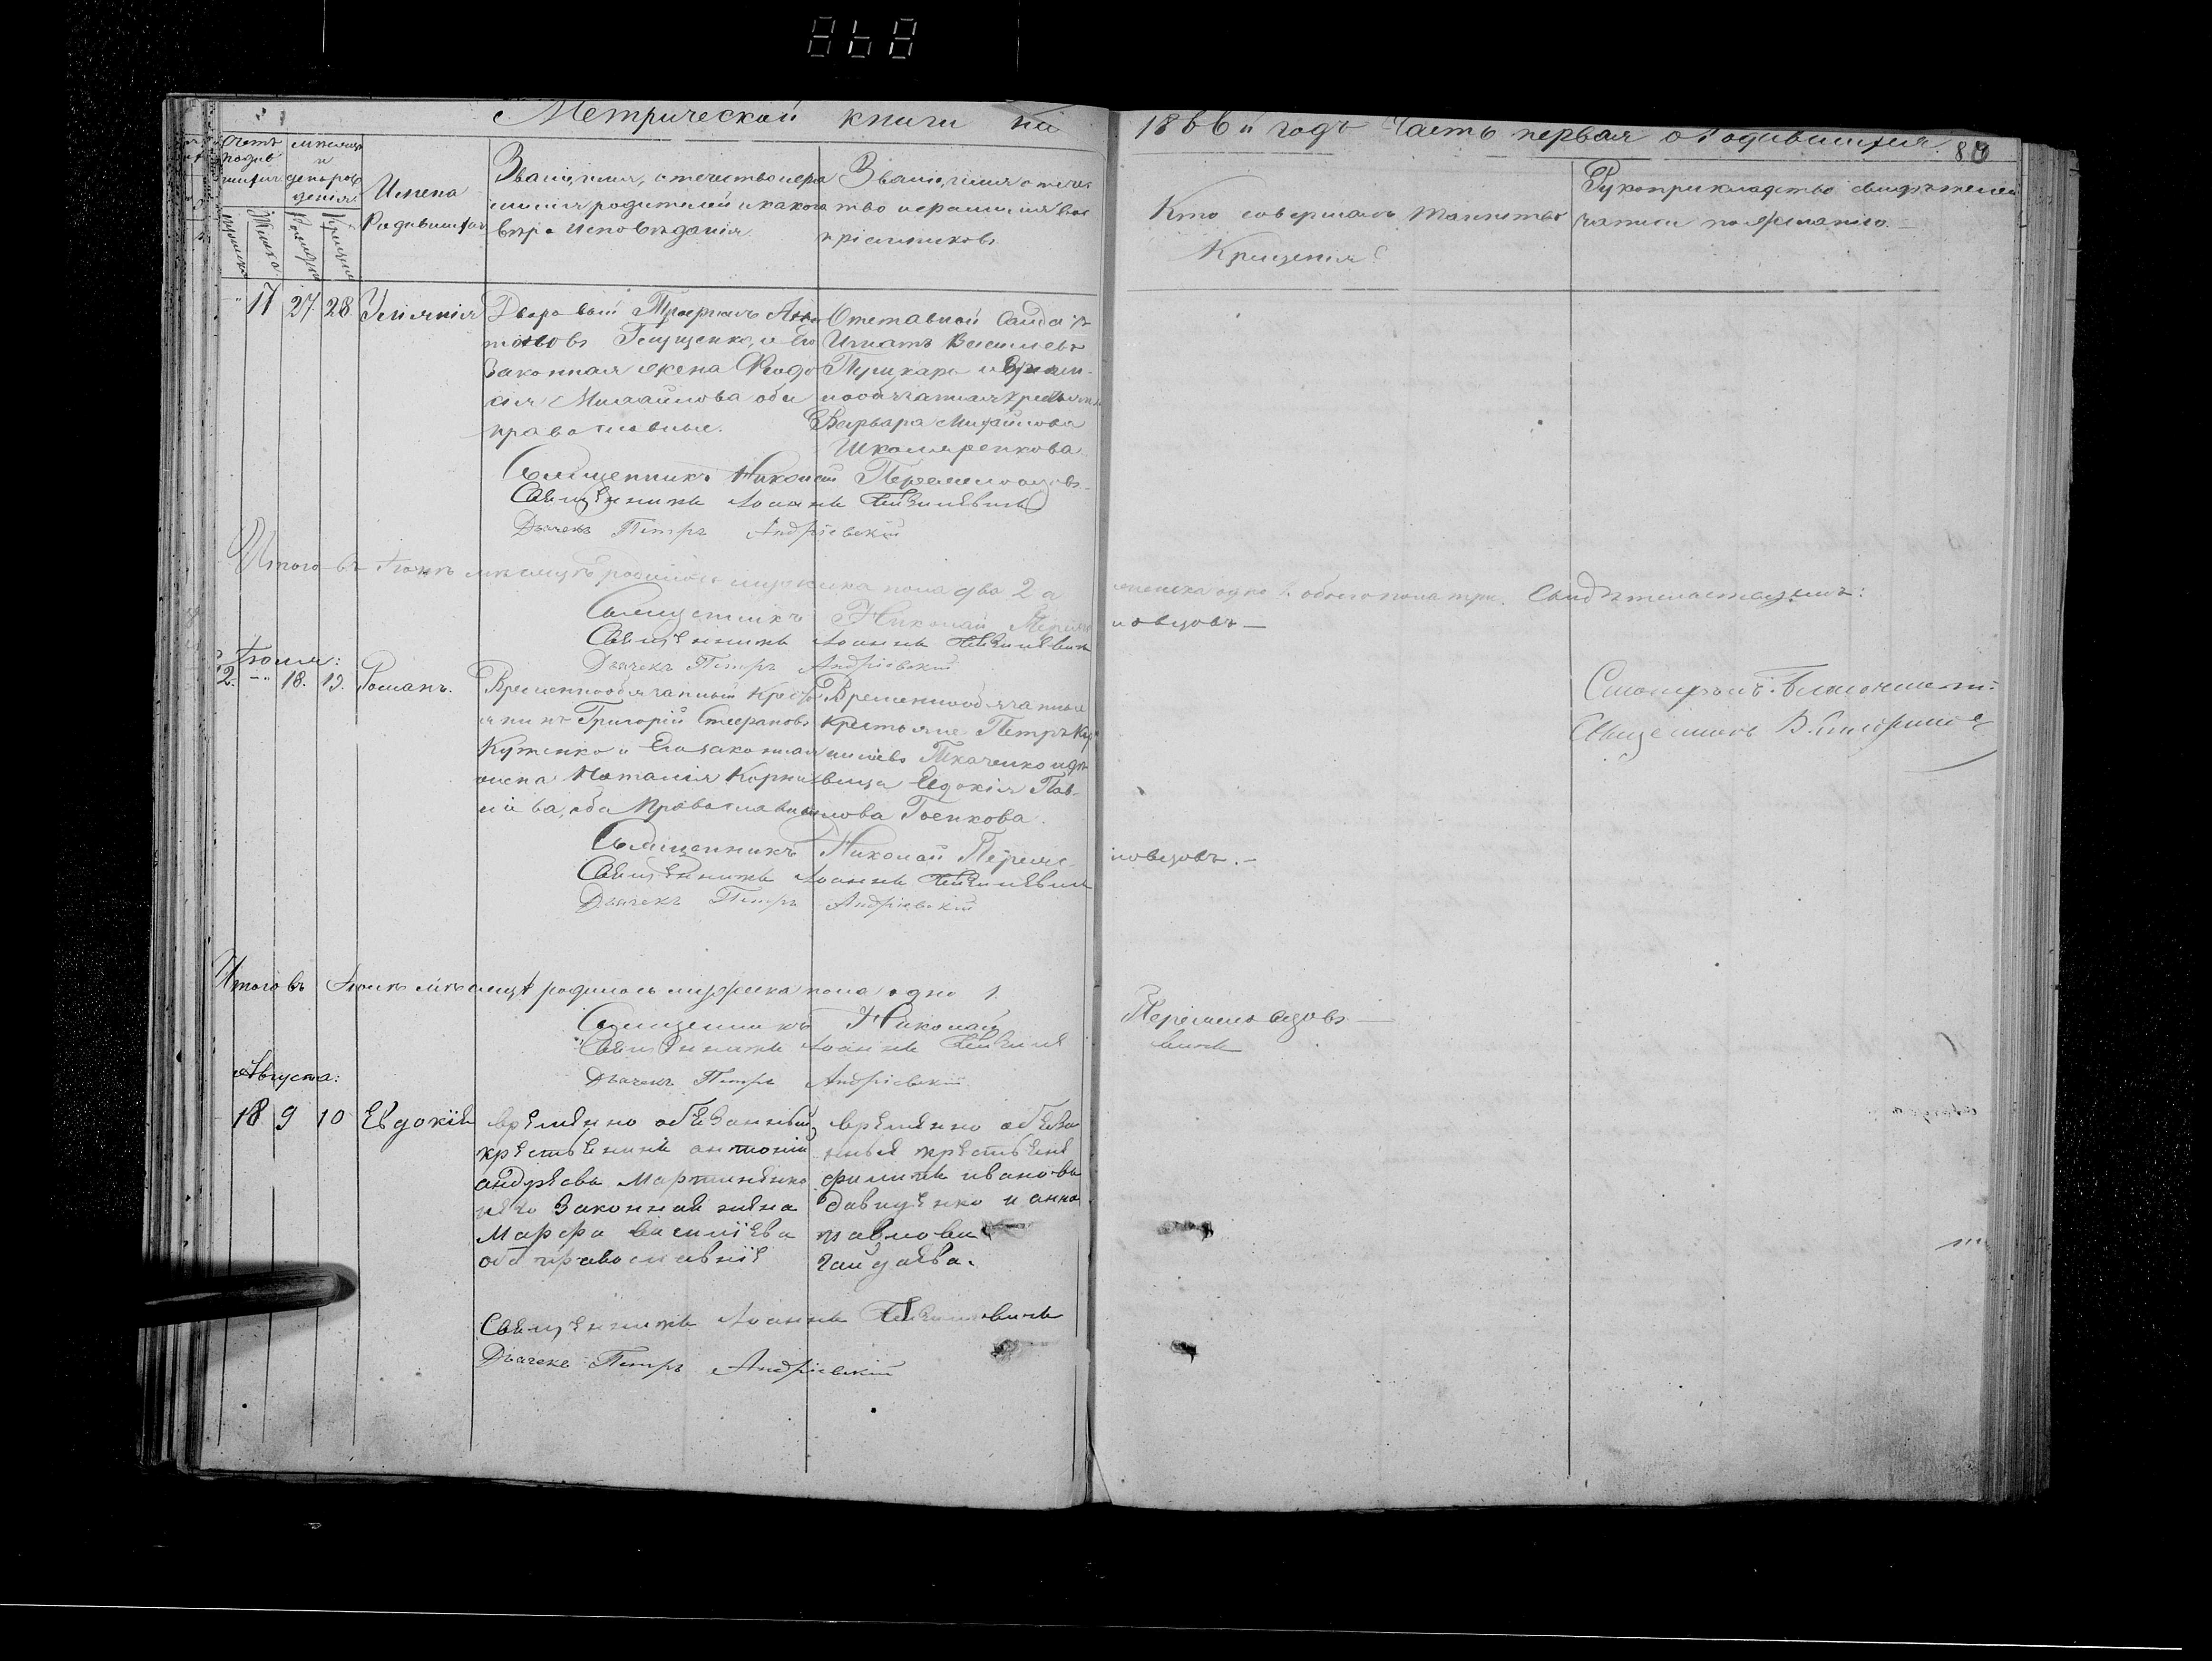 868
Метрической книги на
1866й годъ Часть первая о Родившихся.
Имена
Родившихся
Званіе, имя, отечество и фа
милія родителей и какого
вѣроисповѣданія
Званіе, имя отечес
тво и фамилія вос
пріемниковъ
Кто совершалъ таинство
Крещенія?
Рукоприкладство свидѣтелей
записи по желанію.
17 27 28
Дворовый Трофимъ
Гещенко, и его
Законная жена Ѳеодо
сія Михайлова оба
православные.
Отставной Солдатъ
Игнатъ Васильевъ
Пушкарь и Времен
нообязанная крестьянка
Варвара Михайлова
Школяренкова
Священникъ Николай
Священникъ Іоаннъ
Дьячекъ Петръ Андріевскій
Итого въ Іюнѣ мѣсяцѣ родилось мужеска пола два 2 а
женска одно 1. обоего пола три. Свидѣтельствуемъ:
Священникъ Николай
Священникъ Іоаннъ
Дьячекъ Петръ Андріевскій
Іюля:
2. 18. 19. Романъ.
Временнообязанный Кресть
янинъ Григорій Стефановъ
Куценко и Его законная
жена Наталія Корни
ліева, оба Православные
Временнообязанные
Крестьяне Петръ
Ткаченко и дѣ
вица Евдокія Пав
лова Гоенкова.
Священникъ Николай
Священникъ Іоаннъ
Дьячекъ Петръ Андріевскій
Священникъ
Итого въ Іюлѣ мѣсяцѣ родилось мужеска пола одно 1.
Священникъ Николай
Священникъ Іоаннъ
Дьячекъ Петръ Андріевскій
Августа:
18 9 10 Евдокія
временно обязанный
крестьянинъ антоній
андреевъ Мартиненко
и его Законная жена
Марфа василіева
оба православніе
временно обяза
нные крестьяне
филипъ ивановъ
давиденко и анна
павлова
гайдаева.
Священникъ Іоаннъ
Дьячекъ Петръ Андріевскій